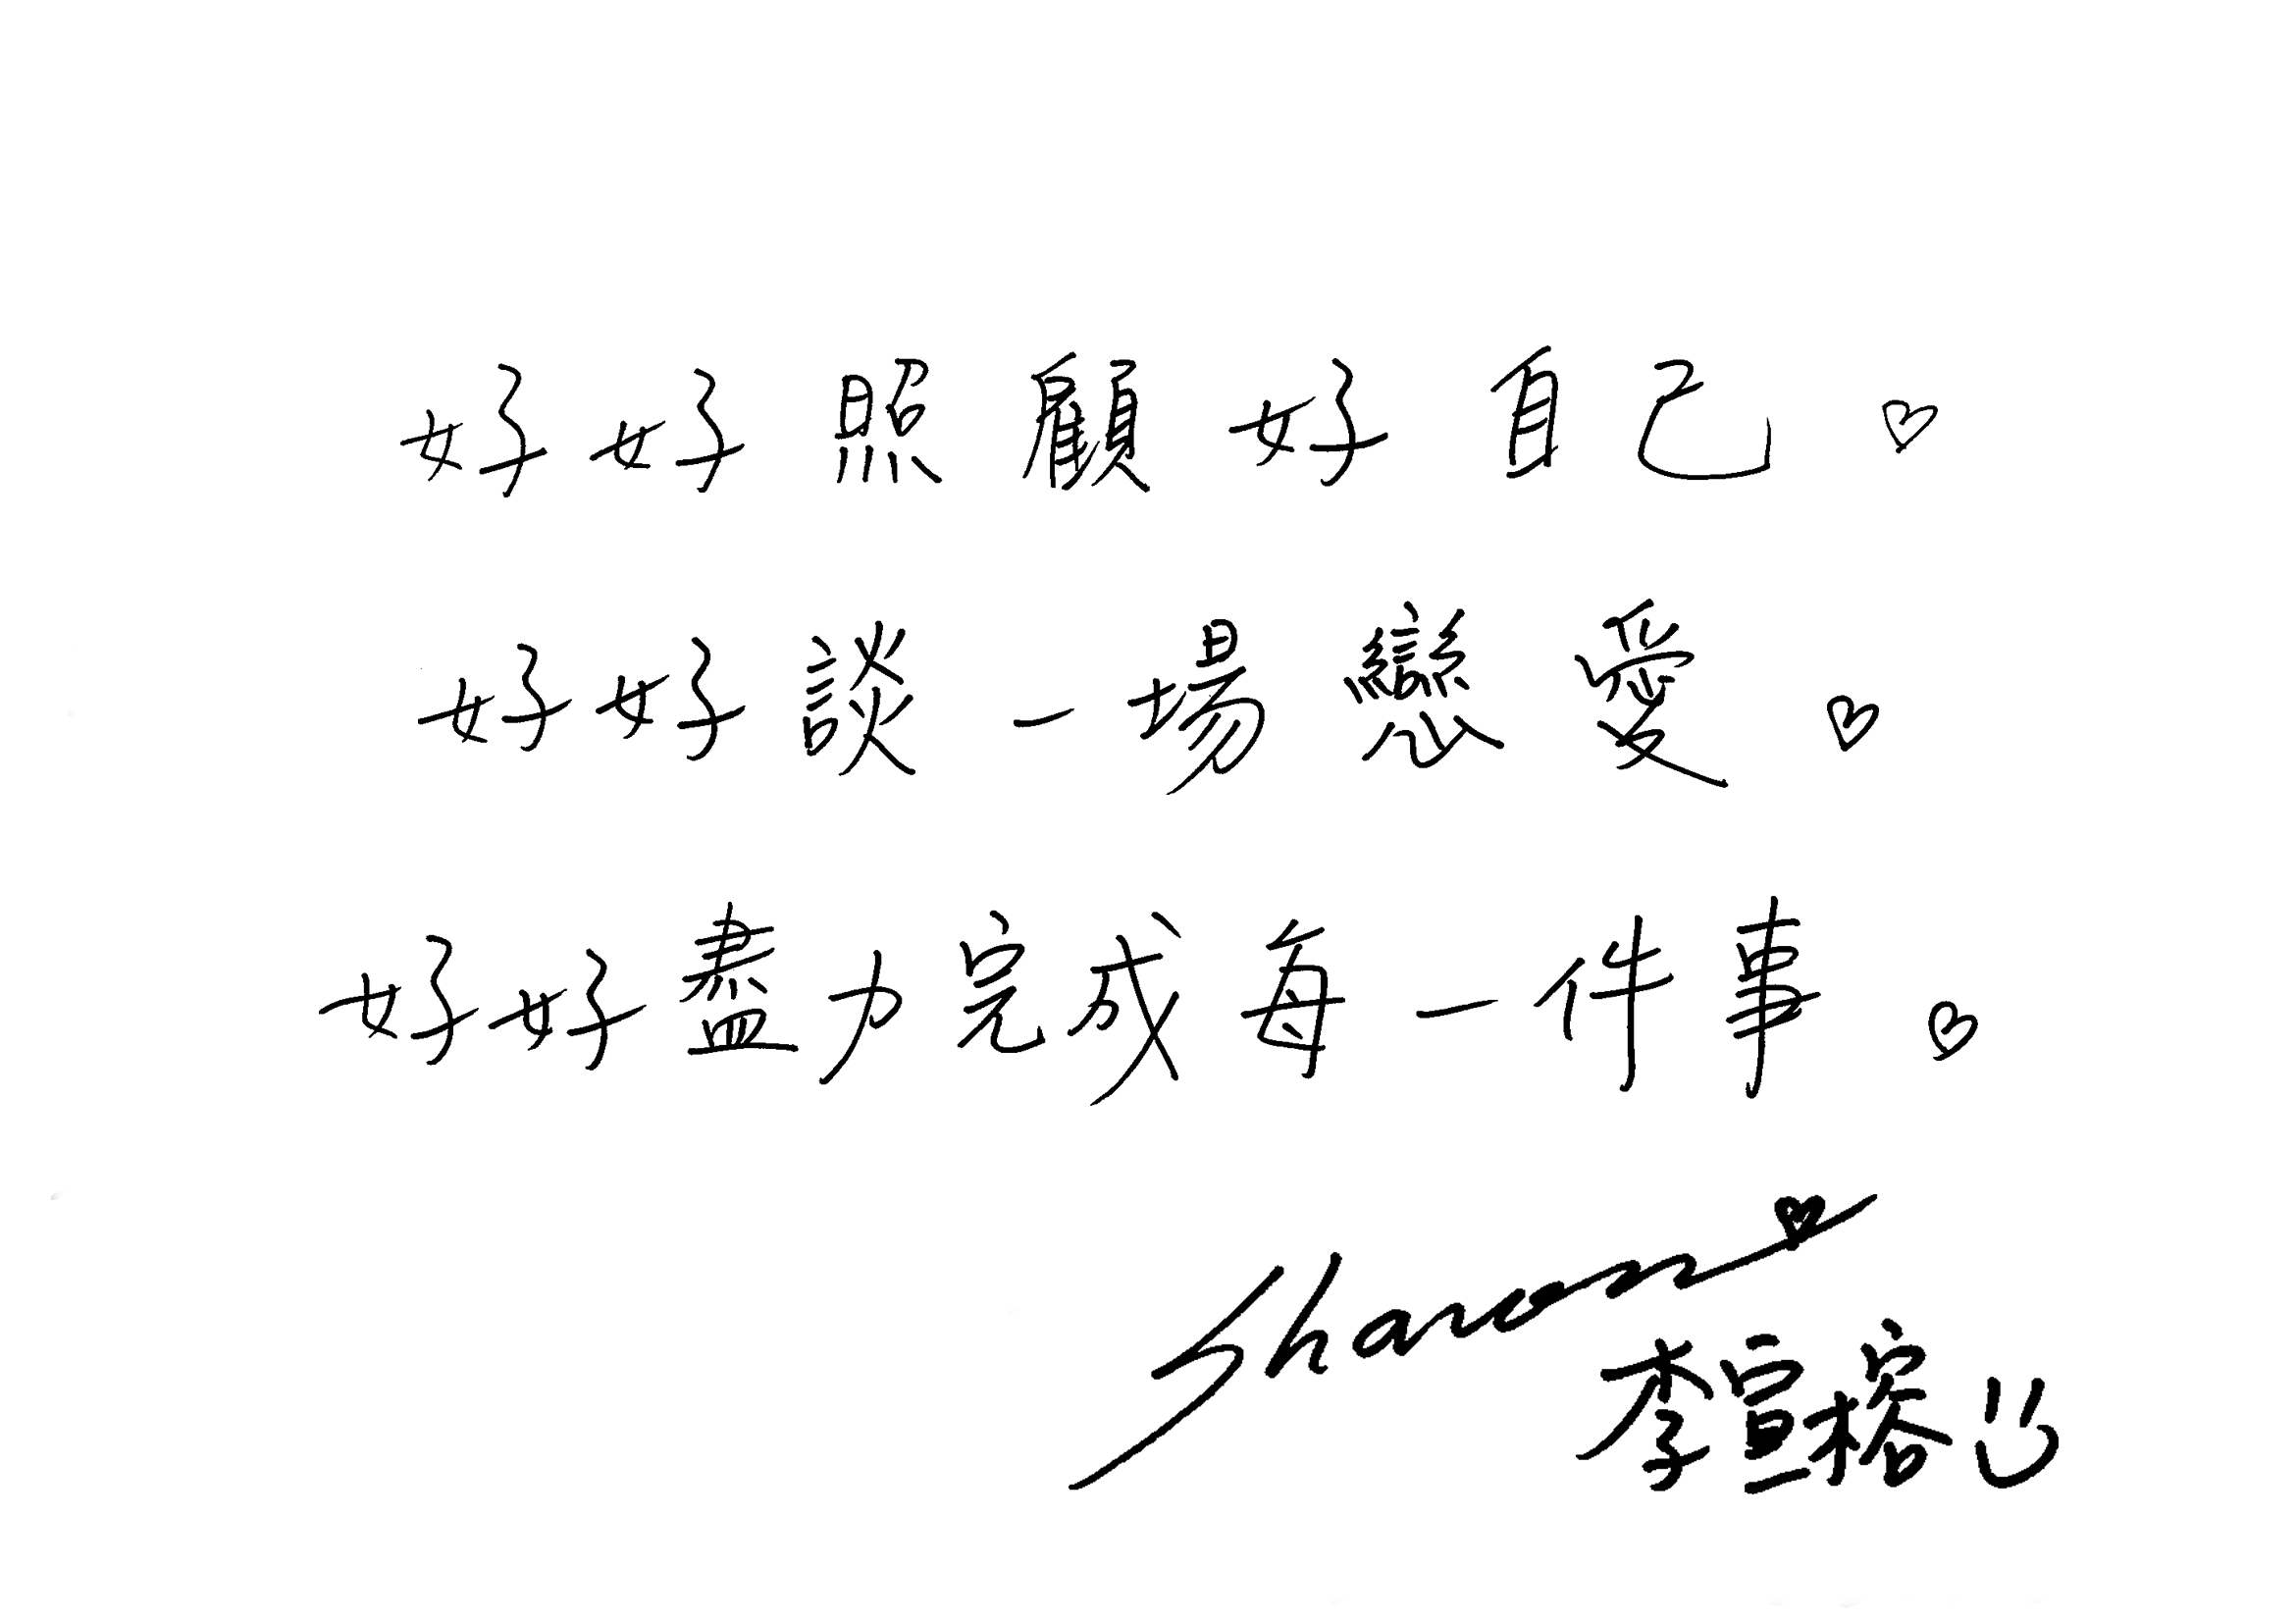 好好照顧好自己♡
好好談一場戀愛♡
好好盡力完成每一件事♡
Sharon♡
李宣榕